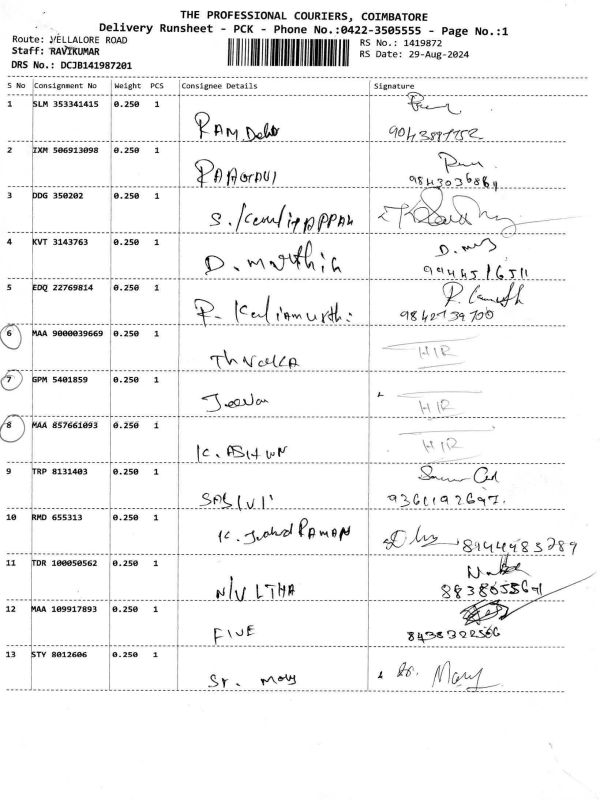 THE PROFESSIONAL COURIERS, COIMBATORE
Delivery Runsheet - PCK - Phone No.:0422-3505555 - Page No.:1
Route: VELLALORE ROAD
RS No.: 1419872
Staff: RAVIKUMAR
RS Date: 29-Aug-2024
DRS No.: DCJB141987201
S No Consignment No Weight PCS Consignee Details Signature
1 SLM 353341415 0.250 1
RAM
2 IXM 506913098 0.250 1
9843036869
3 DDG 350202 0.250 1
S.
4 KVT 3143763 0.250 1
D. D.
9944516511
5 EDQ 22769814 0.250 1
R.
9842739700
6 MAA 9000039669 0.250 1
HIR
7 GPM 5401859 0.250 1
Jeevan HIR
8 MAA 857661093 0.250 1
K. ASHWIN HIR
9 TRP 8131403 0.250 1
9361192697.
10 RMD 655313 0.250 1
K. RAMAN 8944483289
11 TDR 100050562 0.250 1
8838055691
12 MAA 109917893 0.250 1
FIVE 8438322566
13 STY 8012606 0.250 1
Sr. Mary Sr. Mary